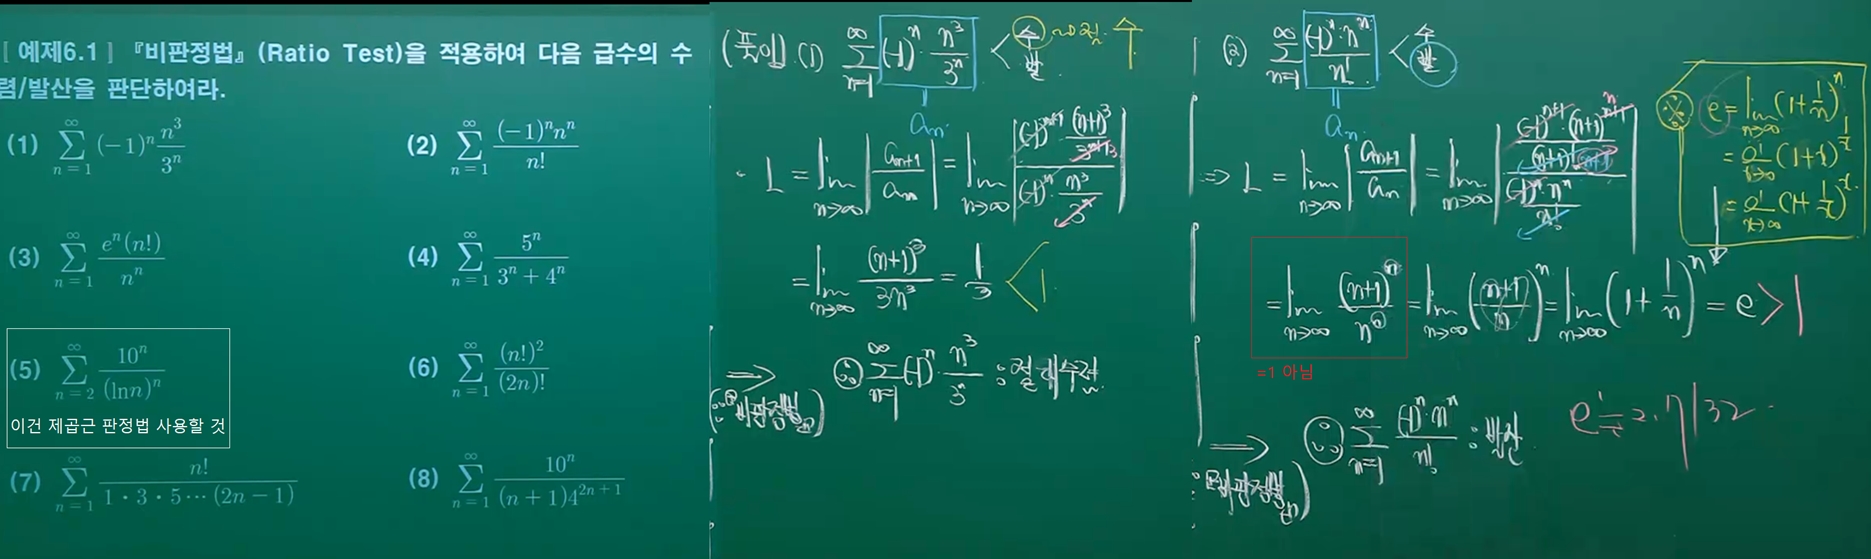 [ 예제6.1 ] 『비판정법』(Ratio Test)을 적용하여 다음 급수의 수
렴/발산을 판단하여라.
(1) \sum_{n=1}^{∞} (-1)^n \frac{n^3}{3^n}
(2) \sum_{n=1}^{∞} \frac{(-1)^n n^n}{n!}
(3) \sum_{n=1}^{∞} \frac{e^n(n!)}{n^n}
(4) \sum_{n=1}^{∞} \frac{5^n}{3^n+4^n}
(5) \sum_{n=2}^{∞} \frac{10^n}{(\ln n)^n}
이건 제곱근 판정법 사용할 것
(6) \sum_{n=1}^{∞} \frac{(n!)^2}{(2n)!}
(7) \sum_{n=1}^{∞} \frac{n!}{1・3・5⋯(2n-1)}
(8) \sum_{n=1}^{∞} \frac{10^n}{(n+1)4^{2n+1}}
(풀이) (1) \sum_{n=1}^{∞} (-1)^n \cdot \frac{n^3}{3^n} < 수 발
a_n
L = \lim_{n→∞} |\frac{a_{n+1}}{a_n}| = \lim_{n→∞} |\frac{(-1)^{n+1} \cdot \frac{(n+1)^3}{3^{n+1}}}{(-1)^n \cdot \frac{n^3}{3^n}}|
= \lim_{n→∞} \frac{(n+1)^3}{3n^3} = \frac{1}{3} < 1
⇒ ∴ \sum_{n=1}^{∞} (-1)^n \cdot \frac{n^3}{3^n} : 절대수렴
(∵ 비판정법)
(2) \sum_{n=1}^{∞} \frac{(-1)^n \cdot n^n}{n!} < 수 발
a_n
⇒ L = \lim_{n→∞} |\frac{a_{n+1}}{a_n}| = \lim_{n→∞} |\frac{\frac{(-1)^{n+1} \cdot (n+1)^{n+1}}{(n+1)!}}{\frac{(-1)^n \cdot n^n}{n!}}|
= \lim_{n→∞} \frac{(n+1)^n}{n^n} = \lim_{n→∞} (\frac{n+1}{n})^n = \lim_{n→∞} (1+\frac{1}{n})^n = e > 1
=1 아님
⇒ ∴ \sum_{n=1}^{∞} \frac{(-1)^n \cdot n^n}{n!} : 발산
(∵ 비판정법)
※ e = \lim_{n→∞} (1+\frac{1}{n})^n